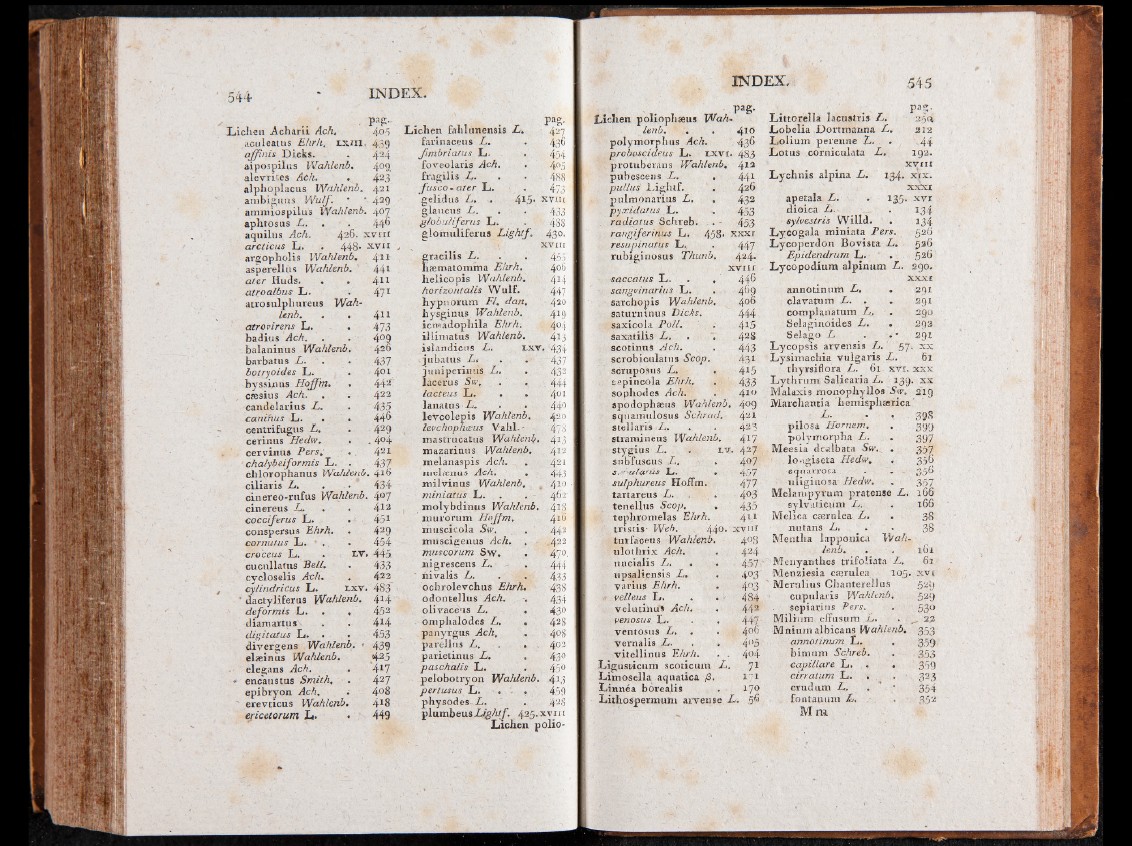 544
INDEX.
pag.
Lichen Acharii Ach. 405
aculeatus Ehrh. LXIII. 439
affinis Dicks. 424
aipospilus Wahlenb. 409
alevrites Ach. 423
alphoplacus Wahlenb. 421
ambiguus Wulf. 429
ammiospilus Wahlenb. 407
aphtosus L. 446
aquilus Ach. 426. XVIII
arcticus L. 448. XVII
argopholis Wahlenb. 411
asperellus Wahlenb. 441
ater Huds. 411
atroalbus L. 471
atrosulphureus Wah-
lenb. 411
atrovirens L. 473
badius Ach. 409
balaninus Wahlenb. 426
barbatus L. 437
botryoides L. 401
byssinus Hoffm. 442
cæsius Ach. 422
candelarius L. 435
caninus L. 446
centrifugus L. 429
cerinus Hedw. 404
cervinus Pers. 421
chalybeiformis L. 437
chlorophanus Wahlenb. 416
ciliaris L. 434
cinereo-rufus Wahlenb. 407
cinereus L. 412
cocciferus L. 451
conspersus Ehrh. 429
cornutus L. 454
croceus L. LV. 445
cucullatus Bell. 433
cycloselis Ach. 422
cylindricus L. LXV. 483
dactyliferus Wahlenb. 414
deformis L. 452
diamartus 414
digitatus L. 453
divergens Wahlenb. 439
elæinus Wahlenb. 425
elegans Ach. 417
encaustus Smith. 427
epibryon Ach. 408
erevticus Wahlenb. 418
ericetorum L. 449
pag.
Lichen fahlunensis L. 427
farinaceus L. 436
fimbriatus L. 454
foveolaris Ach. 405
fragilis L. 488
fusco-ater L. 473
gelidus L. 415. XVIII
glaucus L. 433
globuliferus L. 488
glomuliferus Lightf. 430.
XVIII
gracilis L. 455
hæmatomma Ehrh. 406
helicopis Wahlenb. 414
horizontalis Wulf. 447
hypnorum Fl. dan. 420
hysginus Wahlenb. 419
icmadophila Ehrh. 404
illimatus Wahlenb. 413
islandicus L. LXV. 434
jubatus L. 437
juniperinus L. 432
lacerus Sw. 444
lacteus L. 401
lanatus L. 440
levcolepis Wahlenb. 420
levchophæus Vahl. 478
mastrucatus Wahlenb. 413
mazarinus Wahlenb. 412
melanaspis Ach. 421
melænus Ach. 443
milvinus Wahlenb. 410
miniatus L. 462
molybdinus Wahlenb. 418
murorum Hoffm. 416
muscicola Sw. 442
muscigenus Ach. 422
muscorum Sw. 470
nigrescens L. 444
nivalis L. 433
ochrolevchus Ehrh. 438
odontellus Ach. 434
olivaceus L. 430
omphalodes L. 428
panyrgus Ach. 408
parellus L. 402
parietinus L. 430
paschalis L. 450
pelobotryon Wahlenb. 413
pertusus L. 459
physodes L. 428
plumbeus Lightf. 425. XVIII
Lichen polio-
INDEX.
545
pag.
Lichen poliophæus Wah-
lenb. 410
polymorphus Ach. 436
proboscideus L. LXVI. 483
protuberans Wahlenb. 412
pubescens L. 441
pullus Lightf. 426
pulmonarius L. 432
pyxidatus L. 453
radiatus Schreb. 453
rangiferinus L. 458. XXXI
resupinatus L. 447
rubiginosus Thunb. 424.
XVIII
saccatus L. 446
sangvinarius L. 469
sarchopis Wahlenb. 406
saturninus Dicks. 444
saxicola Poll. 415
saxatilis L. 428
scotinus Ach. 443
scrobiculatus Scop. 431
scruposus L. 415
sepincola Ehrh. 433
sophodes Ach. 410
spodophæus Wahlenb. 409
squamulosus Schrad. 421
stellaris L. 423
stramineus Wahlenb. 417
stygius L. LV. 427
subfuscus L. 407
L. 457
sulphureus Hoffm. 477
tartareus L. 403
tenellus Scop. 435
tephromelas Ehrh. 411
tristis Web. 440. XVIII
turfaceus Wahlenb. 408
ulothrix Ach. 424
uncialis L. 457
upsaliensis L. 403
varius Ehrh. 403
velleus L. 484
velutinus Ach. 442
venosus L. 447
ventosus L. 406
vernalis L. 405
vitellinus Ehrh. 404
Ligusticum scoticum L. 71
Limosella aquatica β. 171
Linnéa borealis 170
Lithospermum arvense L. 56
pag.
Littorella lacustris L.
Lobelia Dortmanna L. 212
Lolium perenne L. 44
Lotus corniculata L. 192.
XVIII
Lychnis alpina L. 134. XIX.
XXXI
apetala L. 135. XVI
dioica L. 134
sylvestris Willd. 134
Lycogala miniata Pers. 526
Lycoperdon Bovista L. 526
Epidendrum L. 526
Lycopodium alpinum L. 290.
XXXI
annotinum L. 291
clavatum L. 291
complanatum L. 290
Selaginoides L. 292
Selago L. 291
Lycopsis arvensis L. 57. XX
Lysimachia vulgaris L. 61
thyrsiflora L. 61. XVI. XXX
Lythrum Salicaria L. 139. XX
Malaxis monophyllos Sw. 219
Marchantia hemisphærica
L. 398
pilosa Hornem. 399
polymorpha L. 397
Meesia dealbata Sw. 357
longiseta Hedw. 356
squarrosa 356
uliginosa Hedw. 357
Melampyrum pratense L. 166
sylvaticum L. 166
Melica cærulea L. 38
nutans L. 38
Mentha lapponica Wah-
lenb. 161
Menyanthes trifoliata L. 61
Menziesia cærulea 105. XVI
Merulius Chanterellus 529
cupularis Wahlenb. 529
sepiarius Pers. 530
Milium effusum L. 22
Mnium albicans Wahlenb. 353
annotinum L. 359
bimum Schreb. 353
capillare L. 359
cirratum L. 323
crudum L. 354
fontanum L. 352
M m